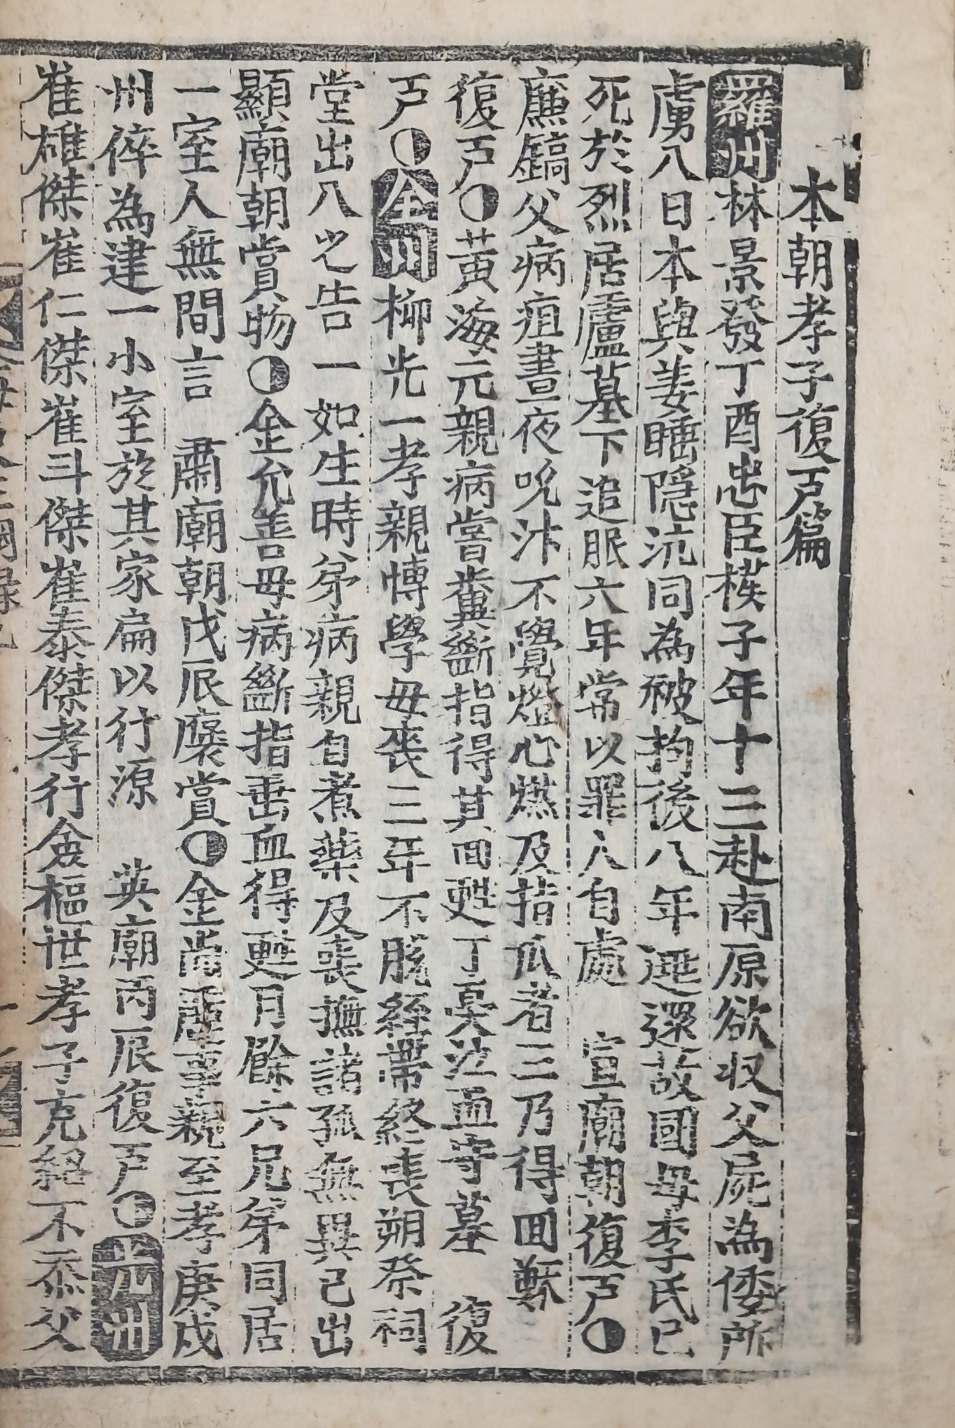 本朝孝子復戶篇
羅州林景發丁酉忠臣㙉子年十三赴南原欲収父屍為倭所
虜入日本與姜睡隱沆同為被拘後八年逃還故國母李氏已
死於烈居廬墓下追服六年常以罪人自處 宣廟朝復戶○
廉鎬父病疽晝夜吮汁不覺燈心燃及指瓜者三乃得回穌
復戶○黃海元親病嘗糞斷指得其回甦丁憂泣血守墓 復
戶○全州柳光一孝親博學母喪三年不脫絰帶終喪朔祭祠
堂出入必告一如生時弟病親自煮藥及喪撫諸孤無異己出
顯廟朝賞物○金允善母病斷指垂血得甦月餘六兄弟同居
一室人無間言 肅廟朝戊辰褒賞○金尚 事親至孝庚戌
州倅為建一小室於其家扁以行源 英廟丙辰復戶○光州
崔雄傑崔仁傑崔斗傑崔泰傑孝行僉樞世孝子克紹不忝父